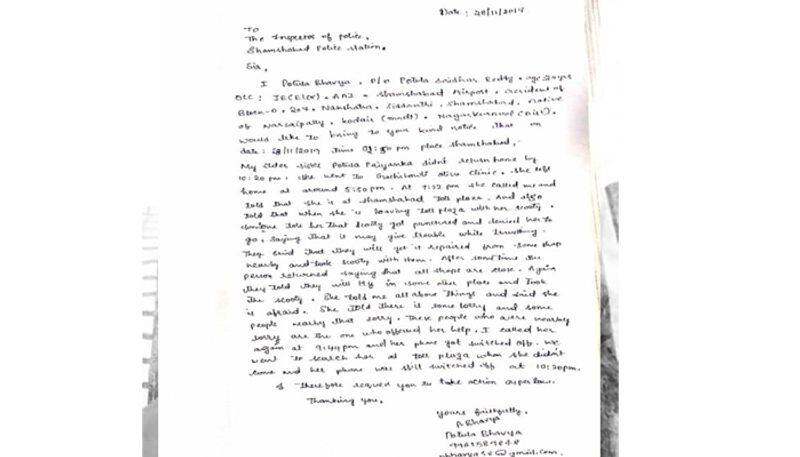 Date: 28/11/2019
To
The Inspector of police,
Shamshabad Police station.
Sir,
I Potula Bhavya, D/o Potula Sridhar Reddy, age
Occ: , AAI - Shamshabad Airport, resident of
Block-D, 207, Nakshatra, Siddanthi, Shamshabad, native
of Narsaipally, (Mndl), Nagarkurnool (Dist).
would like to bring to your kind notice that on
date: 28/11/2019 Time place Shamshabad,
My elder sister Potula didn't return home by
10:20 pm. She went to Gachibowli Olive Clinic. She left
home at around 5:50 pm. At she called me and
told that she is at Shamshabad toll plaza. And also
told that when she is leaving Toll plaza with her scooty.
someone told her that scooty got punctured and denied her to
go. Saying that it may give trouble while
They said that they will get it repaired from some shop
nearby and took scooty with them. After sometime the
person returned saying that all shops are close. Again
they told they will try in some other place and took
the scooty. She told me all above things and said she
is afraid. She told there is some lorry and some
people nearby that lorry. These people who were nearby
lorry are the one who offered her help. I called her
again at 9:44 pm and her phone got switched off. We
went to search her at Toll plaza when she didn't
come and her phone was still switched off at 10:20pm.
I therefore request you to take action as per law.
Thanking you.
yours faithfully,
P. Bhavya
Potula Bhavya